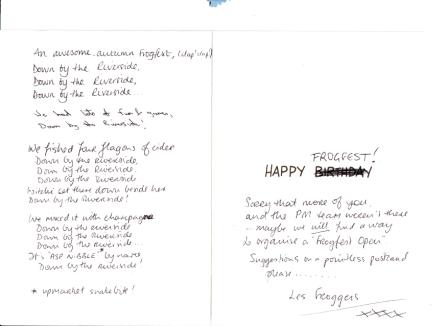 An awesome autumn Frogfest, (clap clap)
Down by the Riverside,
Down by the Riverside,
Down by the Riverside...
We had lots of fun & games,
Down by the Riverside!
We fished four flagons of cider
Down by the Riverside,
Down by the Riverside,
Down by the Riverside
set them down beside her
Down by the Riverside!
We mixed it with champagne
Down by the riverside
Down by the riverside
Down by the riverside...
It's 'ASP NIBBLE'* by name,
Down by the riverside,
* upmarket snakebite!
FROGFEST!
HAPPY BIRTHDAY
Sorry that more of you
and the PM team weren't there
... maybe we will find a way
to organise a "Frogfest Open"
Suggestions on a pointless postcard
please........
Les Froggers
xxxx